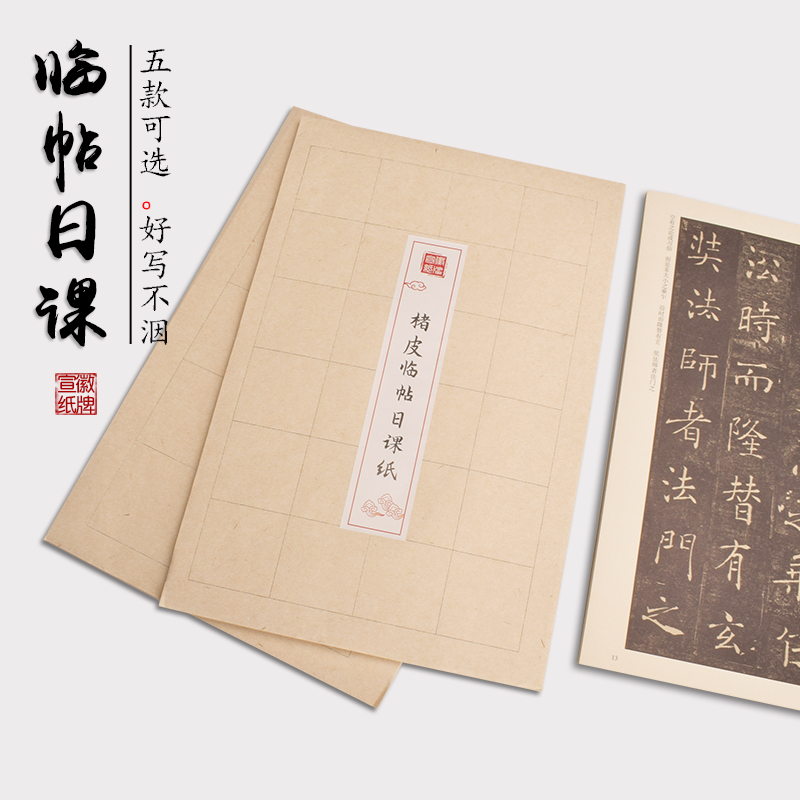 临帖日课
五款可选。好写不洇
徽牌
宣纸
楮皮临帖日课纸
沿時而隆替有玄
奘法師者法門之